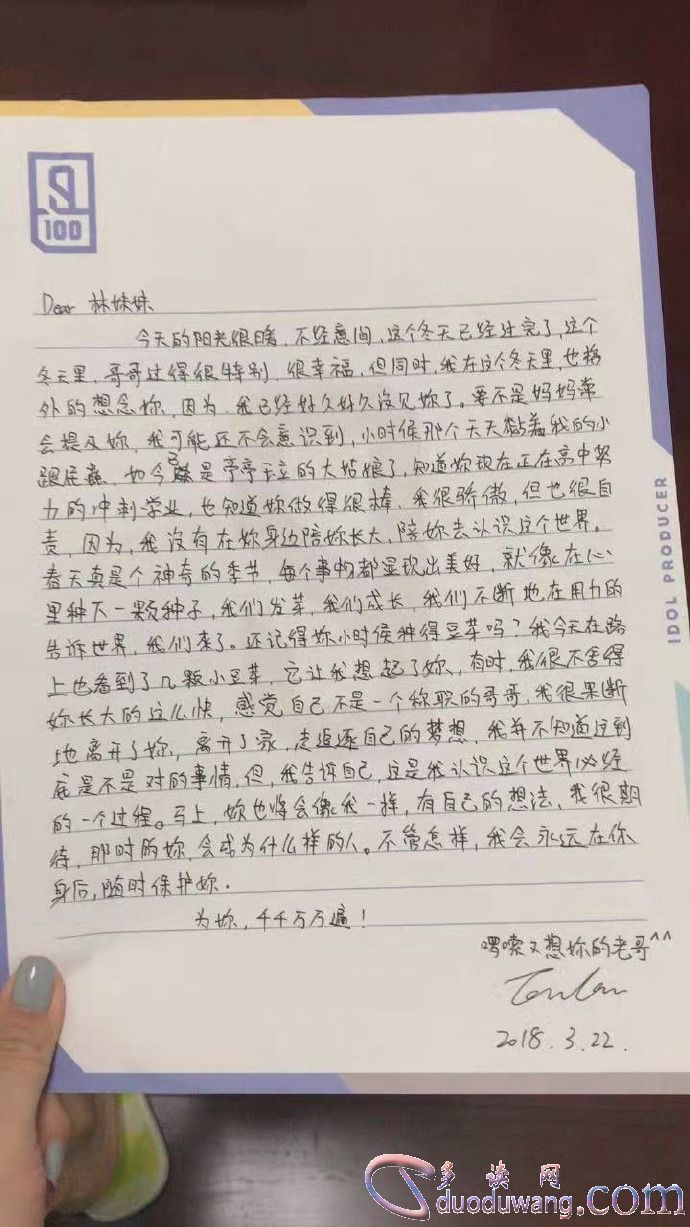 100
Dear 林妹妹
今天的阳光很暖，不经意间，这个冬天已经过完了，这个
冬天里，哥哥过得很特别，很幸福，但同时，我在这个冬天里，也格
外的想念妳，因为，我已经好久好久没见妳了。要不是妈妈常
会提及妳，我可能还不会意识到，小时候那个天天黏着我的小
跟屁虫，如今已是亭亭玉立的大姑娘了，知道妳现在正在高中努
力的冲刺学业，也知道妳做得很棒，我很骄傲，但也很自
责，因为，我没有在妳身边陪妳长大，陪妳去认识这个世界。
春天真是个神奇的季节，每个事物都显现出美好，就像在心
里种下一颗种子，我们发芽，我们成长，我们不断地在用力的
告诉世界，我们来了。还记得妳小时候种得豆芽吗？我今天在路
上也看到了几颗小豆芽，它让我想起了妳，有时，我很不舍得
妳长大的这么快，感觉自己不是一个称职的哥哥，我很果断
地离开了妳，离开了家，去追逐自己的梦想，我并不知道这到
底是不是对的事情，但，我告诉自己，这是我认识这个世界必经
的一个过程。马上，妳也将会像我一样，有自己的想法，我很期
待，那时的妳，会成为什么样的人。不管怎样，我会永远在你
身后，随时保护妳。
为妳，千千万万遍！
啰嗦又想妳的老哥^^
2018.3.22.
IDOL PRODUCER
多读网
duoduwang.com